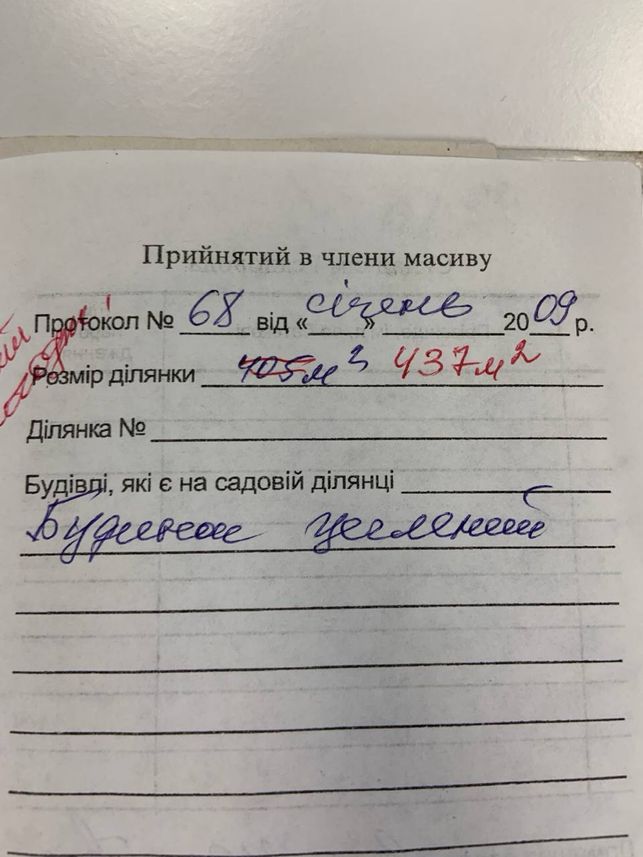 Прийнятий в члени масиву
Протокол № 68 від « січень » 2009 р.
Розмір ділянки 405м² 437м²
Ділянка №
Будівлі, які є на садовій ділянці
Будинок цегляний